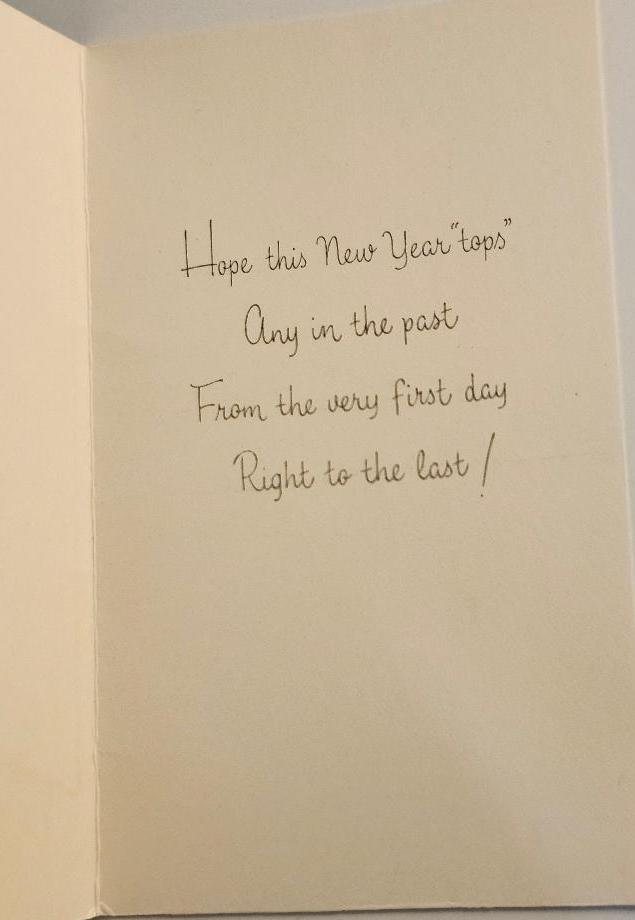 Hope this New Year “tops”
Any in the past
From the very first day
Right to the last!